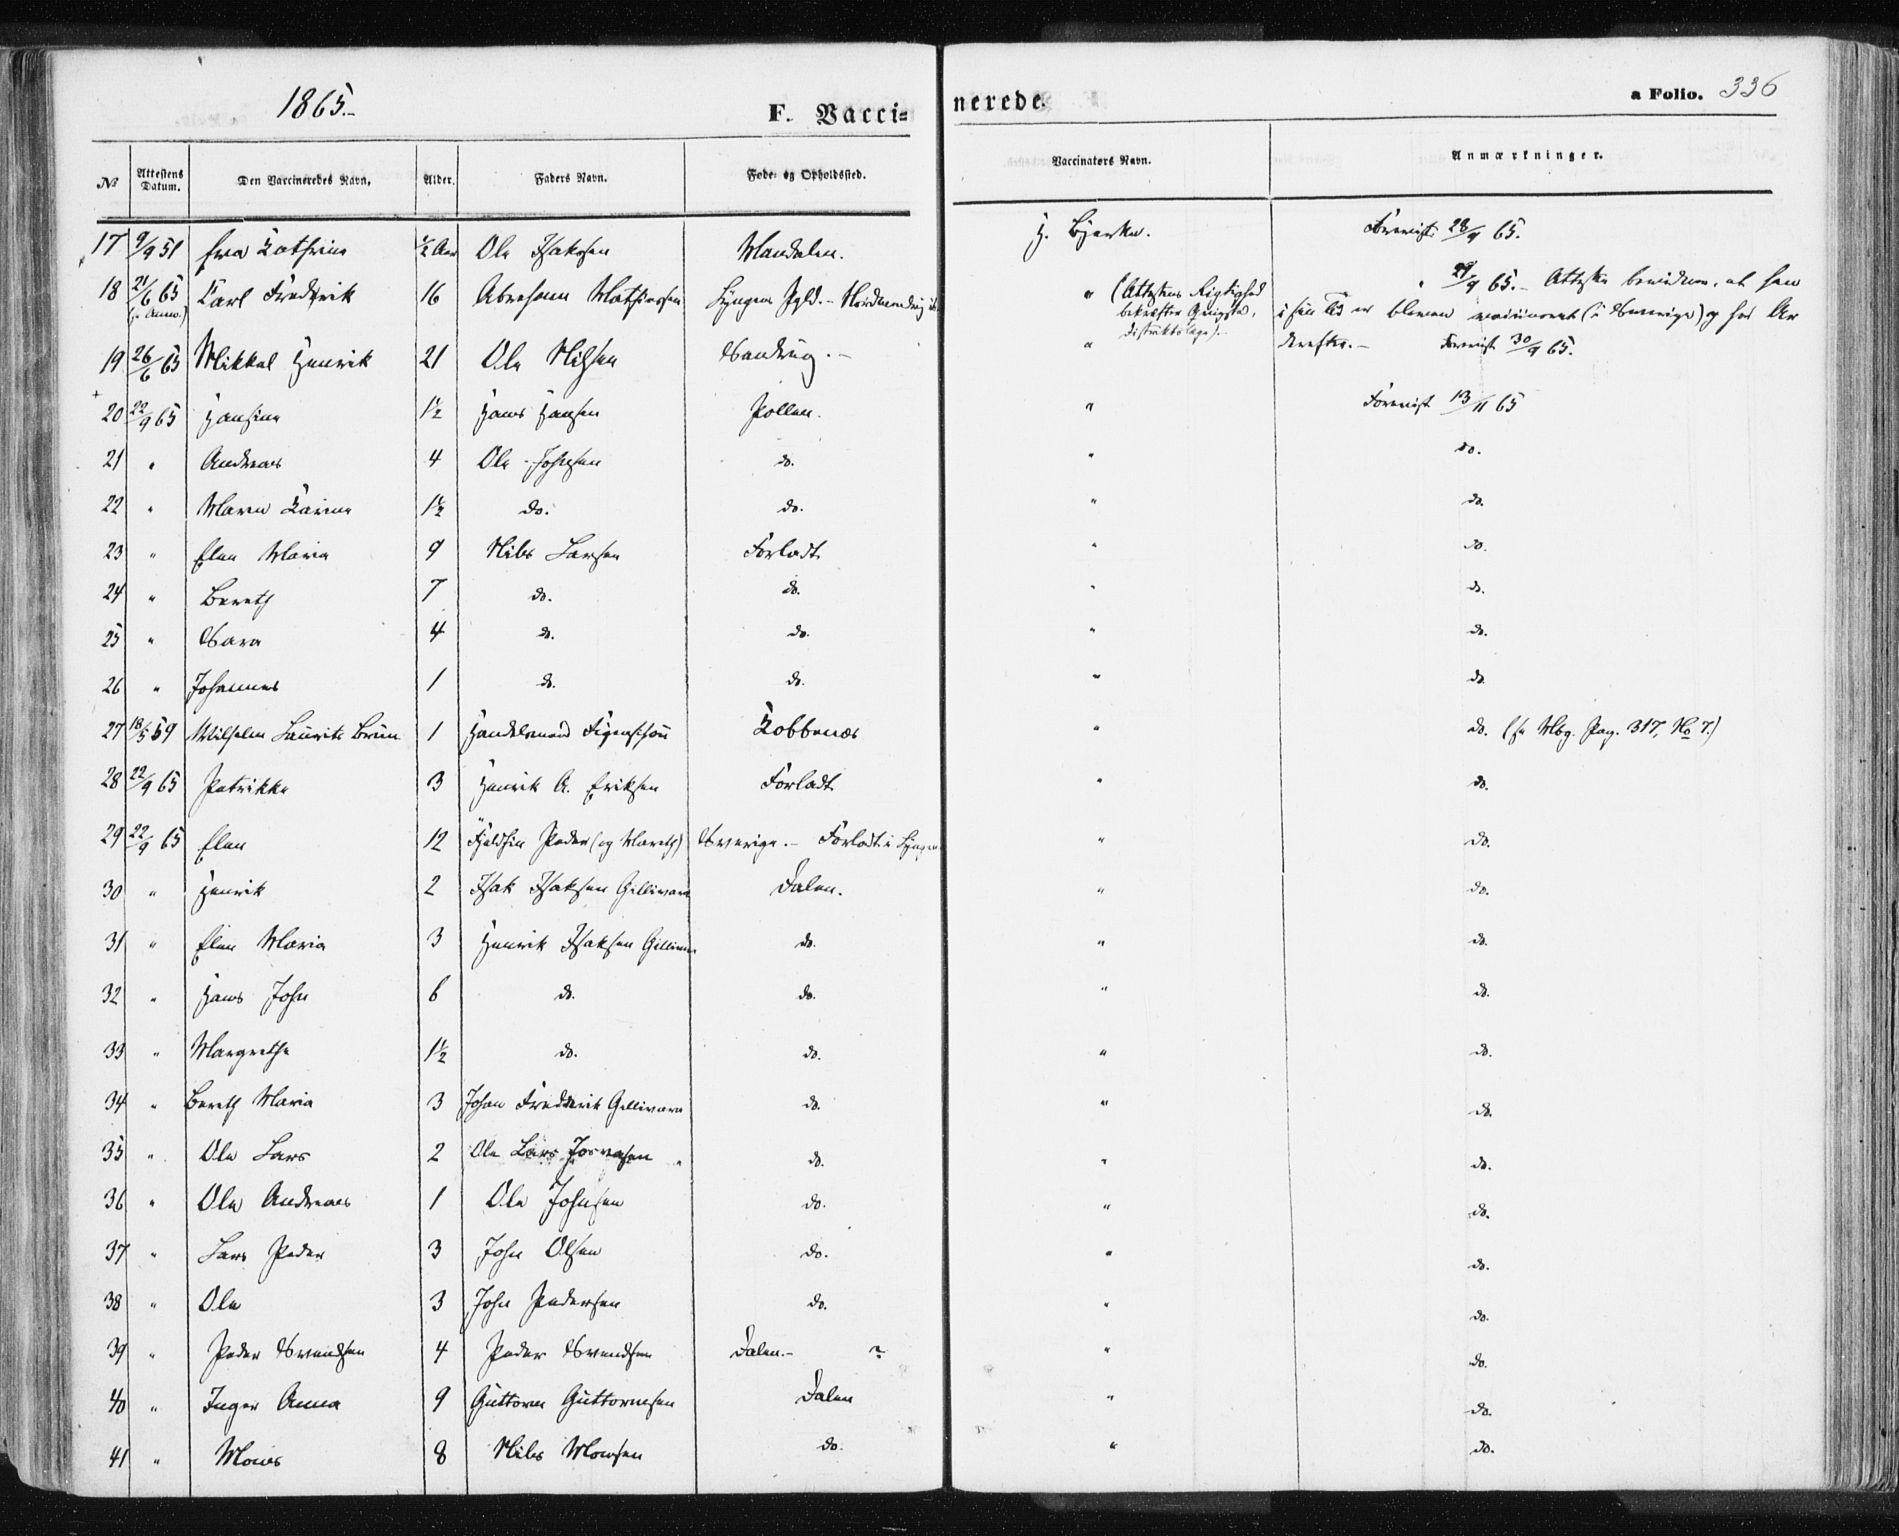 1865.-
F. Vaccinerede.
a Folio. 336
№ | Attestens Datum. | Den Vaccineredes Navn. | Alder. | Faders Navn. | Føde- og Opholdssted. | Vaccinators Navn. | Anmærkninger.
17 | 9/9 51 | Ewa Cathrine | ½ Aar | Ole Isaksen | Mandalen. | H. Bjerke. | Forevist 28/9 65.
18 | 21/6 65 (se Anm.) | Carl Fredrik | 16 | Abraham Mathiassen | Lyngen Pgld. - | " (Attestens Rigtighed bekræfter | " 29/9 65. - Attesten bevidner, at han i sin Tid er bleven vaccineret (i Sverige) og har Ar derefter. -
19 | 26/6 65 | Mikkal Henrik | 21 | Ole Nilsen | Sandvig. - | " | Forevist 30/9 65.
20 | 22/9 65 | Hansine | 1½ | Hans Hansen | Pollen. | " | Forevist 13/11 65
21 | " | Andreas | 4 | Ole Johnsen | do. | " | do.
22 | " | Maren Karine | 1½ | do. | do. | " | do.
23 | " | Elen Maria | 9 | Nils Larsen | Forladt | " | do.
24 | " | Bereth | 7 | do. | do. | " | do.
25 | " | Sara | 4 | do. | do. | " | do.
26 | " | Johannes | 1 | do. | do. | " | do.
27 | 18/5 59 | Wilhelm Laurits Brun | 1 | Handelsmand Figenschou | Kobbenæs | " | do. (se Mbg. Pag. 317, No 7.)
28 | 22/9 65 | Petrikke | 3 | Henrik A. Eriksen | Forladt | " | do.
29 | 22/9 65 | Elen | 12 | Fjeldfin Peder (og Mareth) | Sverige. - Forladt i Lyngen | " | do.
30 | " | Henrik | 2 | Isak Isaksen Gellivara | Dalen. | " | do.
31 | " | Elen Maria | 3 | Henrik Isaksen Gellivara | do. | " | do.
32 | " | Hans John | 6 | do. | do. | " | do.
33 | " | Margrethe | 1½ | do. | do. | " | do.
34 | " | Bereth Maria | 3 | Johan Fredrik Gellivara | do. | " | do.
35 | " | Ole Lars | 2 | Ole Lars Josvasen " | do. | " | do.
36 | " | Ole Andreas | 1 | Ole Johnsen | do. | " | do.
37 | " | Lars Peder | 3 | John Olsen | do. | " | do.
38 | " | Ole | 3 | John Pedersen | do. | " | do.
39 | " | Peder Svendsen | 4 | Peder Svendsen | Dalen. - ? | " | do.
40 | " | Inger Anna | 9 | Guttorm Guttormsen | Dalen | " | do.
41 | " | Mons | 8 | Nils Monsen | do. | " | do.